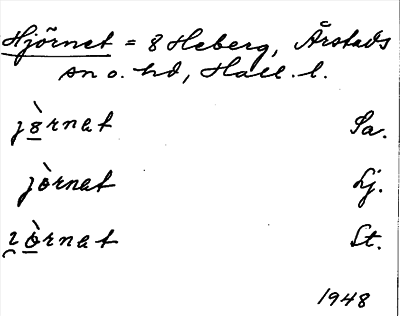 Hjörnet = 8 Heberg, Årstads
sn o. hd, Hall. l.
jö̀rnat Sa.
jòrnat Lj.
ı̯òrnat St.
1948